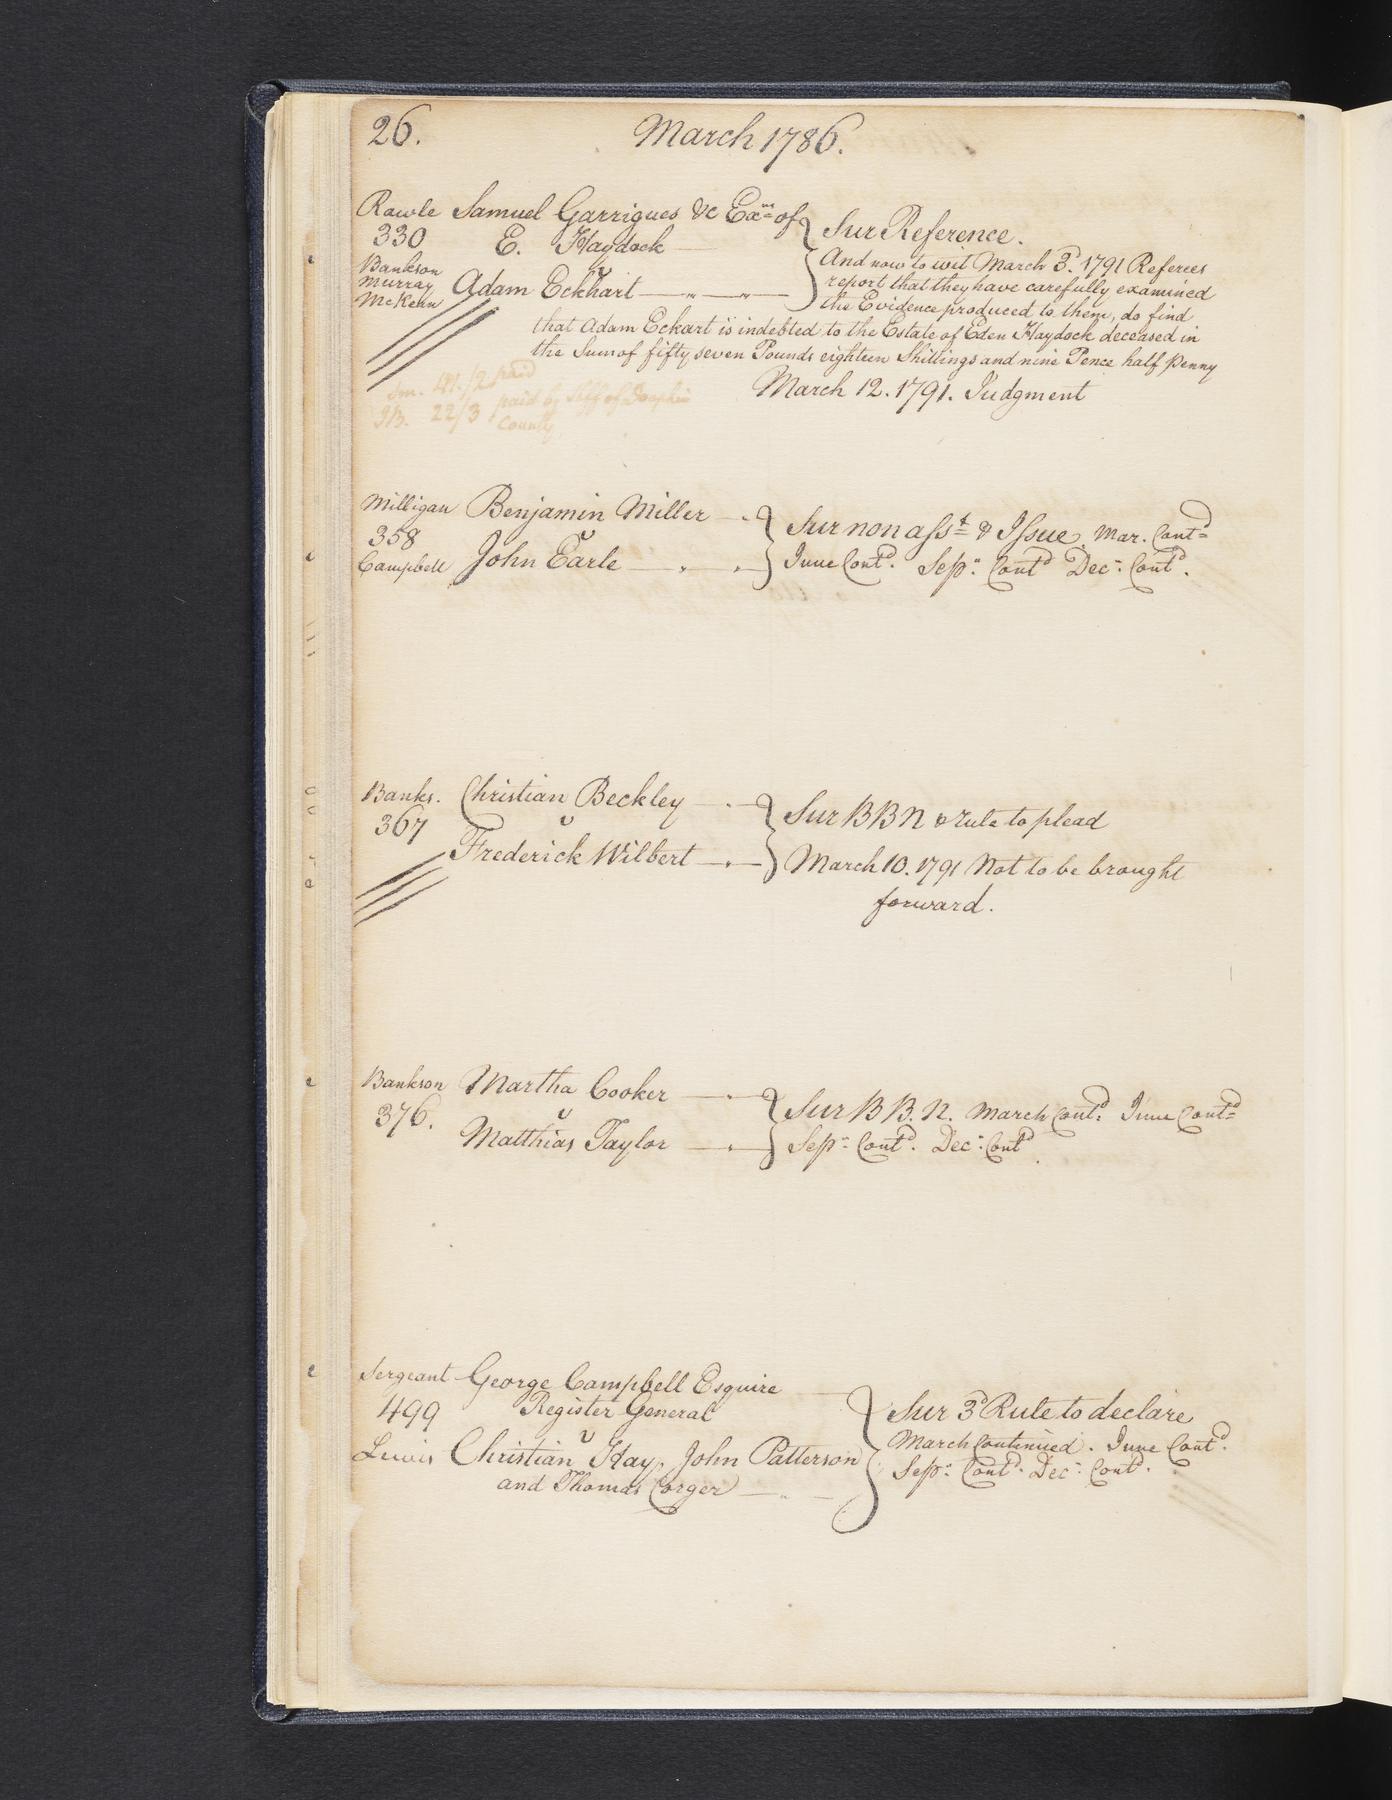 26.
March 1786.
Rawle Samuel Garrigues &c Exrs of
330 E. Haydock
v
Bankson
Murray
McKean
Adam Eckhart
Sur Reference.
And now to wit March 3d. 1791 Referees
report that they have carefully examined
the Evidence produced to them, do find
that Adam Eckart is indebted to the Estate of Eden Haydock deceased in
the Sum of fifty seven Pounds eighteen Shillings and nine Pence half penny
March 12. 1791. Judgment
paid
22/3 paid by Shff of Dauphin
County
Milligan Benjamin Miller
358 v
Campbell John Earle
Sur non asst & Issue. Mar. Contd
June Contd. Sepr. Contd Decr. Contd.
Banks. Christian Beckley
367 v
Frederick Wilbert
Sur B B N & rule to plead
March 10. 1791 Not to be brought
forward.
Bankson Martha Cooker
376. v
Matthias Taylor
Sur B B. N. March Contd. June Contd
Sepr. Contd. Decr. Contd
Sergeant George Campbell Esquire
499 Register General
v
Lewis Christian Hay, John Patterson
and Thomas Corger
Sur 3d Rule to declare
March Continued. June Contd.
Sepr. Contd. Decr. Contd.